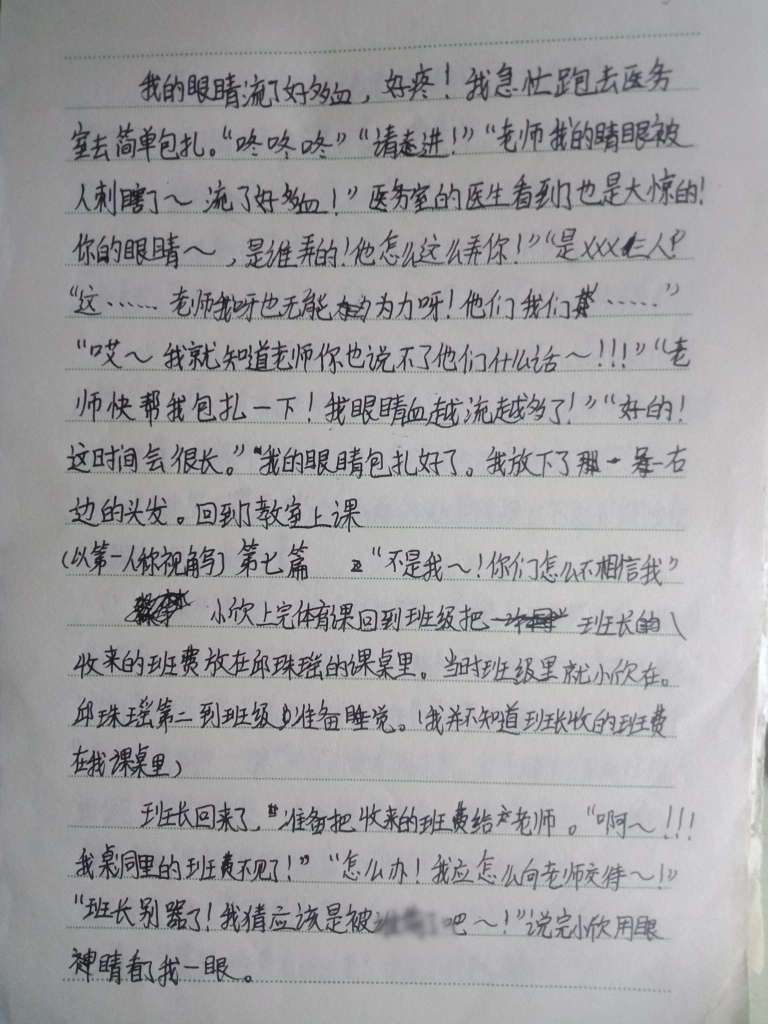 我的眼睛流了好多血，好疼！我急忙跑去医务
室去简单包扎。“咚咚咚”“请进！”“老师我的睛眼被
人刺瞎了～流了好多血！”医务室的医生看到了也是大惊的！
你的眼睛～，是谁弄的！他怎么这么弄你！”“是XXX三人？
“这……老师我呀也无能为力呀！他们我们……”
“哎～我就知道老师你也说不了他们什么话～!!!”“老
师快帮我包扎一下！我眼睛血越流越多了！”“好的！
这时间会很长。”我的眼睛包扎好了。我放下了右
边的头发。回到了教室上课
（以第一人称视角写）第七篇 “不是我～！你们怎么不相信我”
小欣上完体育课回到班级把班长
收来的班费放在邱珠瑶的课桌里。当时班级里就小欣在。
邱珠瑶第二到班级准备睡觉。（我并不知道班长收的班费
在我课桌里）
班长回来了，准备把收来的班费给老师。“啊～!!!
我桌洞里的班费不见了！”“怎么办！我应怎么向老师交待～！”
“班长别器了！我猜应该是被吧～！”说完小欣用眼
神睛看了我一眼。